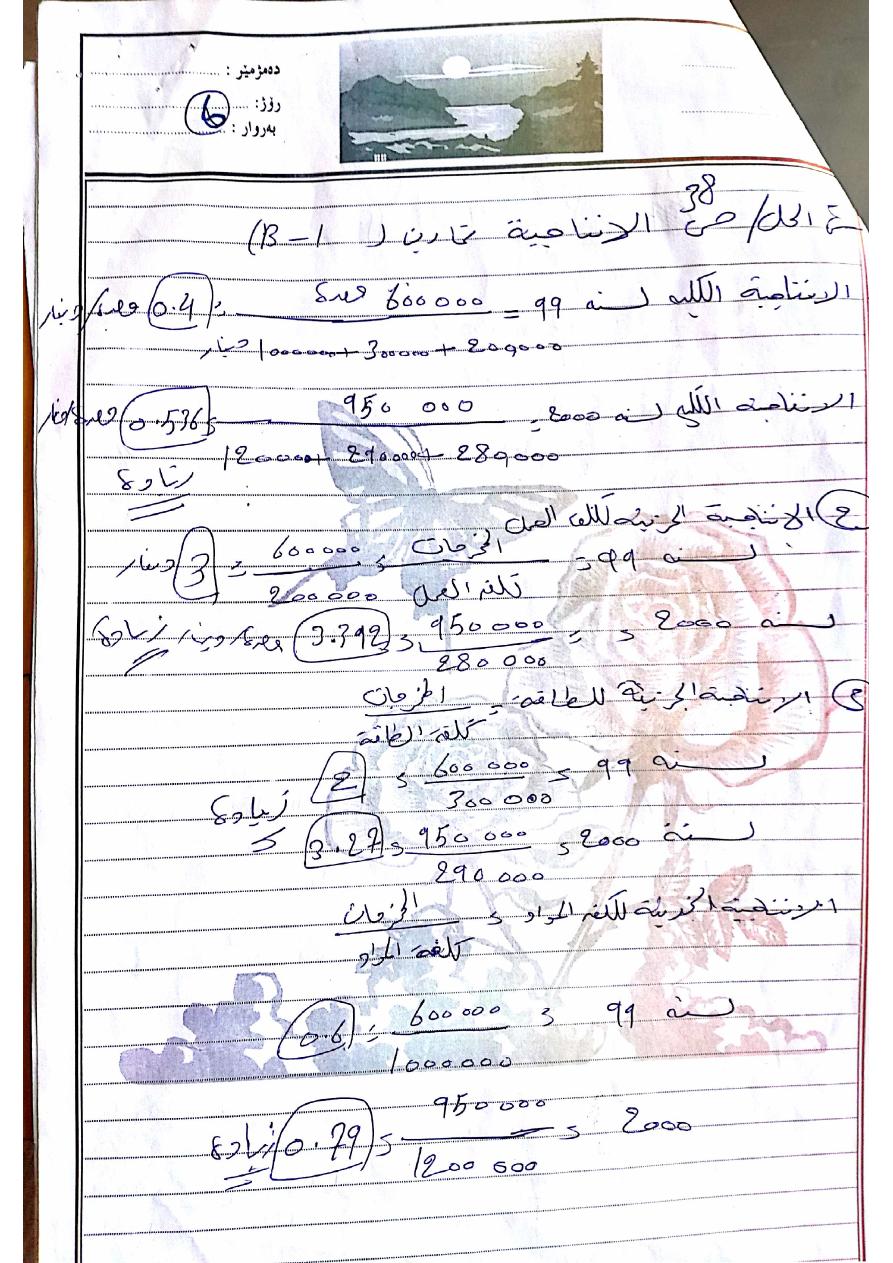 دەمژمێر :
رۆژ: 6
بەروار :
الحل / ص 38 الانتاجية تمارين ( B – 1 )
الانتاجية الكلية لسنه 99 = 600000 وحدة / 1000000 + 300000 + 200000 دينار = 0.4 وحدة/دينار
الانتاجية الكلية لسنه 2000 = 950 000 / 1200000 + 290000 + 280000 = 0.536 وحدة/دينار
زيادة
2 الانتاجية الجزئية لكلفة العمل
لسنه 99 = المخرجات / تكلفة العمل = 600000 / 200000 = 3 دينار
لسنه 2000 = 950000 / 280 000 = 3.392 وحدة/دينار زيادة
3 الانتاجية الجزئية للطاقة = المخرجات / كلفة الطاقة
لسنه 99 = 600 000 / 300 000 = 2
لسنة 2000 = 950 000 / 290 000 = 3.27 زيادة
الانتاجية الجزئية لكلفة المواد = المخرجات / كلفة المواد
لسنه 99 = 600 000 / 1000000 = 0.6
2000 = 950 000 / 1200 000 = 0.79 زيادة